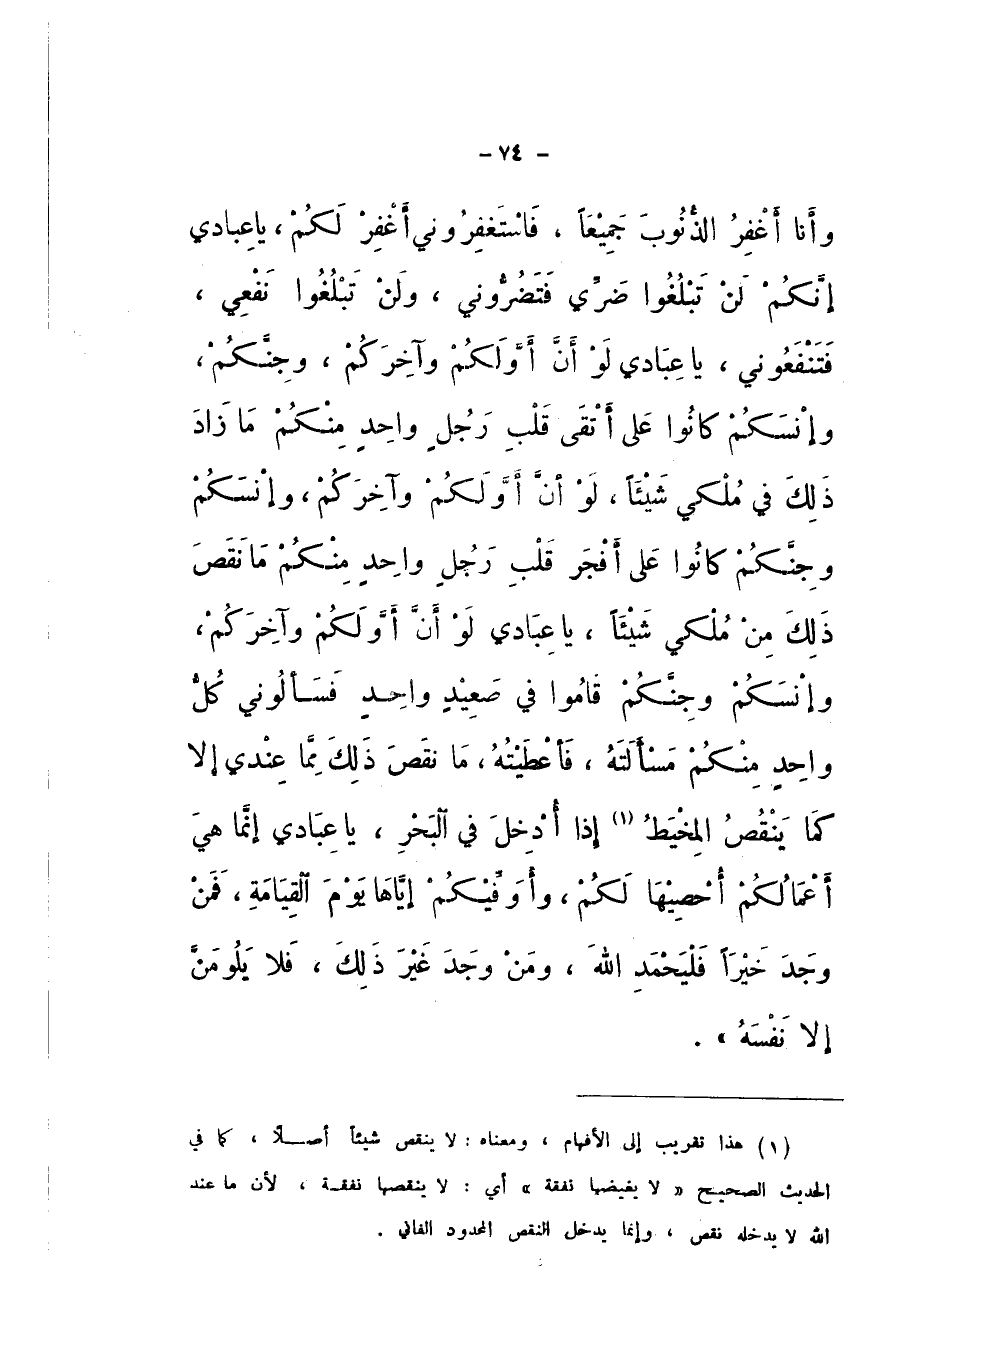 - ٧٤ -
وأَنا أَغْفِرُ الذُّنُوبَ جَمِيْعَاً ، فَاسْتَغفِرُوني أَغْفِرْ لَكُمْ ، ياعِبادي
إِنَّكُمْ لَنْ تَبْلُغُوا ضَرِّي فَتَضُرُّوني ، ولَنْ تَبْلُغُوا نَفْعِي ،
فَتَنْفَعُوني ، ياعِبَادي لَوْ أَنَّ أَوَّلَكُمْ وآخِرَكُمْ ، وجِنَّكُمْ ،
وإِنْسَكُمْ كانُوا عَلى أَتْقَى قَلْبِ رَجُلٍ واحِدٍ مِنْكُمْ مَا زادَ
ذَلِكَ في مُلْكي شَيْئَاً ، لَوْ أَنَّ أَوَّلَكُمْ وآخِرَكُمْ ، وإِنْسَكُمْ
وجِنَّكُمْ كانُوا عَلى أَفْجَرِ قَلْبِ رَجُلٍ واحِدٍ مِنْكُمْ مَانَقَصَ
ذَلِكَ مِنْ مُلْكي شَيْئَاً ، ياعِبَادي لَوْ أَنَّ أَوَّلَكُمْ وآخِرَكُمْ ،
وإِنْسَكُمْ وجِنَّكُمْ قَامُوا في صَعِيْدٍ واحِدٍ فَسَأَلُوني كُلُّ
واحِدٍ مِنْكُمْ مَسْأَلَتَهُ ، فَأَعْطَيْتُهُ ، مَا نقَصَ ذَلِكَ مِمَّا عِنْدي إِلا
كَمَا يَنْقُصُ المِخْيَطُ (١) إِذا أُدْخِلَ في البَحْرِ ، ياعِبَادي إِنَّما هيَ
أَعْمَالُكُمْ أُحْصِيْهَا لَكُمْ ، وأُوَفِّيْكُمْ إِيَّاهَا يَوْمَ القِيَامَةِ ، فَمَنْ
وجَدَ خَيْرَاً فَلْيَحْمَدِ اللهَ ، ومَنْ وجَدَ غَيْرَ ذَلِكَ ، فَلا يَلُومَنَّ
إِلا نَفْسَهُ » .
(١) هذا تقريب إلى الأفهام ، ومعناه : لا ينقص شيئاً أصلاً ، كما في
الحديث الصحيح « لا يغيضها نفقة » أي : لا ينقصها نفقة ، لأن ما عند
الله لا يدخله نقص ، وإنما يدخل النقص المحدود الفاني .